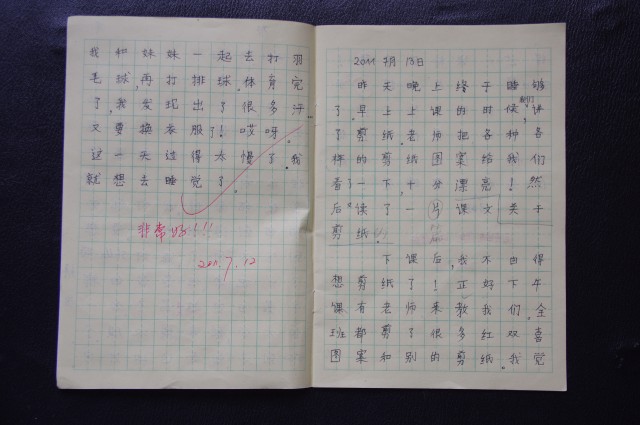 我和妹妹一起去打羽
毛球,再打排球。体育完
了,我发现出了很多汗…
又要换衣服了!哎呀。
这一天过得太慢了。我
就想去睡觉了。
非常好!!!
2011.7.12
2011 7月13日
昨天晚上终于睡够
了。早上上课的时候,我们讲
了剪纸。老师把各种各
样的剪纸图案给我们
看了一下,十分漂亮!然
后读了一片课文关于
剪纸。
下课后,我不由得
想剪纸了!正好下午
课有老师来教我们。全
班都剪了很多红双喜
图案和别的剪纸。我觉